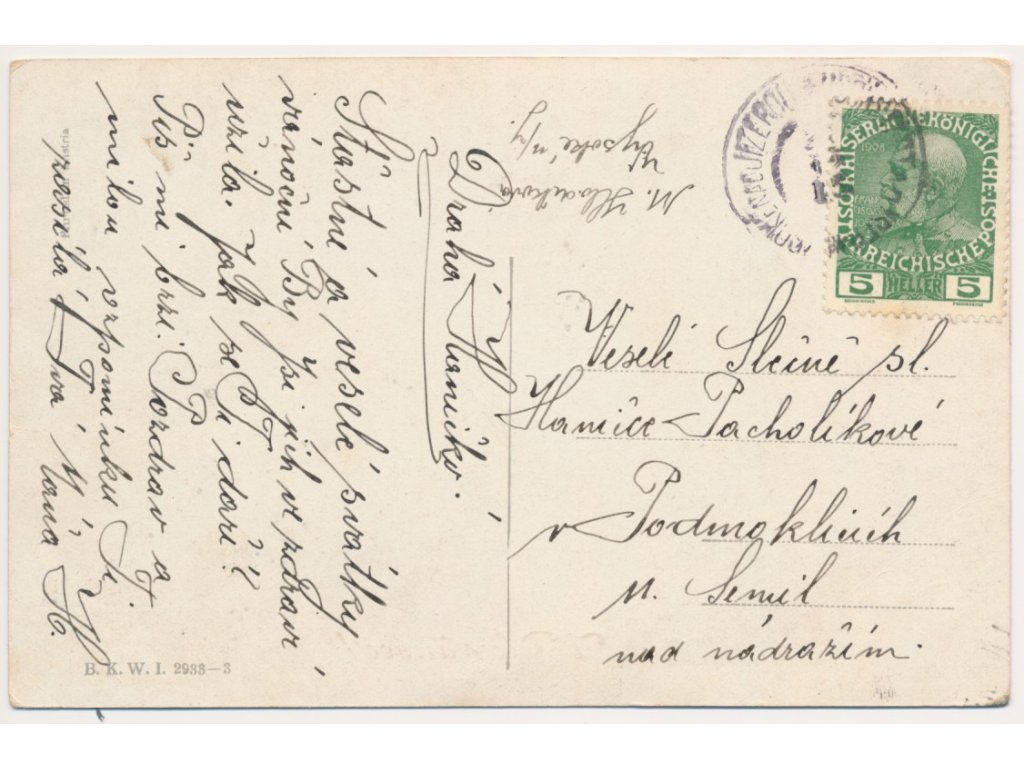 Drahá Haničko.
Šťastné a veselé svátky
vánoční By jsi jich ve zdraví
užila. Jak se Ti daří?
Piš mi brzi. Pozdrav a
milou vzpomínku Ti
zasílá Tvá Máňa H.
M.
Vysoké n/J.
Veselé Slečně sl.
Haničce Pacholíkové
v Podmoklicích
u. Semil
nad nádražím.
KAISERLICHE KÖNIGLICHE POST
ÖSTERREICHISCHE
1908
5 HELLER 5
B. K. W. I. 2933-3